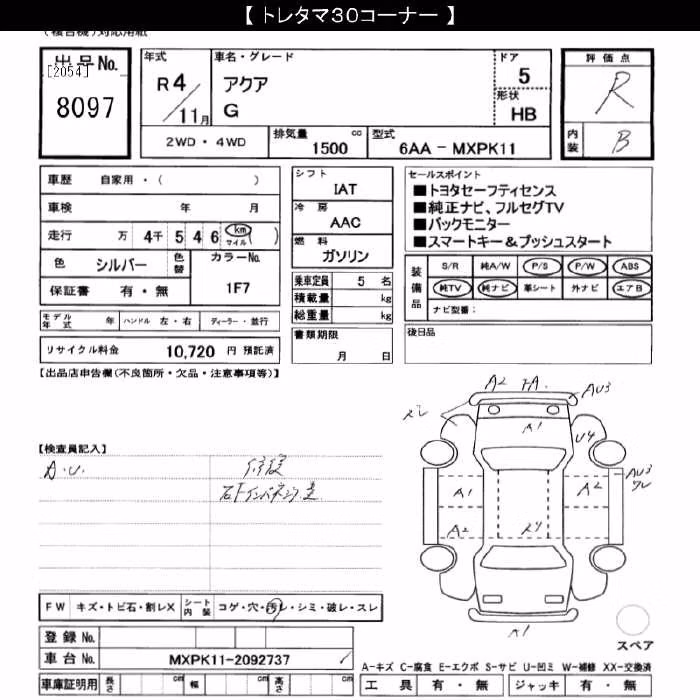 【 トレタマ30コーナー 】
(複合機)対応用紙
出品No. [2054] 8097
年式 R4/11月
車名・グレード アクア G
ドア 5
形状 HB
評価点 R
内装 B
2WD・4WD 排気量 1500 cc 型式 6AA-MXPK11
車歴 自家用・( )
車検 年 月
走行 万 4千 5 4 6 km マイル ( )
色 シルバー 色替 カラーNo. 1F7
保証書 有・無
モデル年式 年 ハンドル 左・右 ディーラー・並行
リサイクル料金 10,720 円 預託済
シフト IAT
冷房 AAC
燃料 ガソリン
乗車定員 5 名
積載量 kg
総重量 kg
書類期限 月 日
セールスポイント
■トヨタセーフティセンス
■純正ナビ、フルセグTV
■バックモニター
■スマートキー&プッシュスタート
装備品 S/R 純A/W P/S P/W ABS
純TV 純ナビ 革シート 外ナビ エアB
ナビ型番:
後日品
【出品店申告欄(不良箇所・欠品・注意事項等)】
【検査員記入】
A.U.
修復
A2 A AU3
A1
U4
A1 A2 AU3
A2
A1
FW キズ・トビ石・割レX シート内装 コゲ・穴・汚レ・シミ・破レ・スレ
登録No.
車台No. MXPK11-2092737
車庫証明用 長さ cm 幅 cm 高さ cm
スペア
A-キズ C-腐食 E-エクボ S-サビ U-凹ミ W-補修 XX-交換済
工具 有・無 ジャッキ 有・無